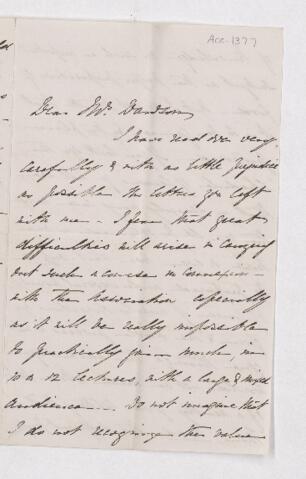 Acc-1377
Dear Mrs. Davidson
I have read over very
carefully & with as little prejudice
as possible the letters you left
with me - I fear that great
difficulties will arise in carrying
out such a course in connexion -
with the Association especially
as it will be really impossible
to practically give much, in
10 or 12 lectures, with a large & mixed
audience - Do not imagine that
I do not recognize the value